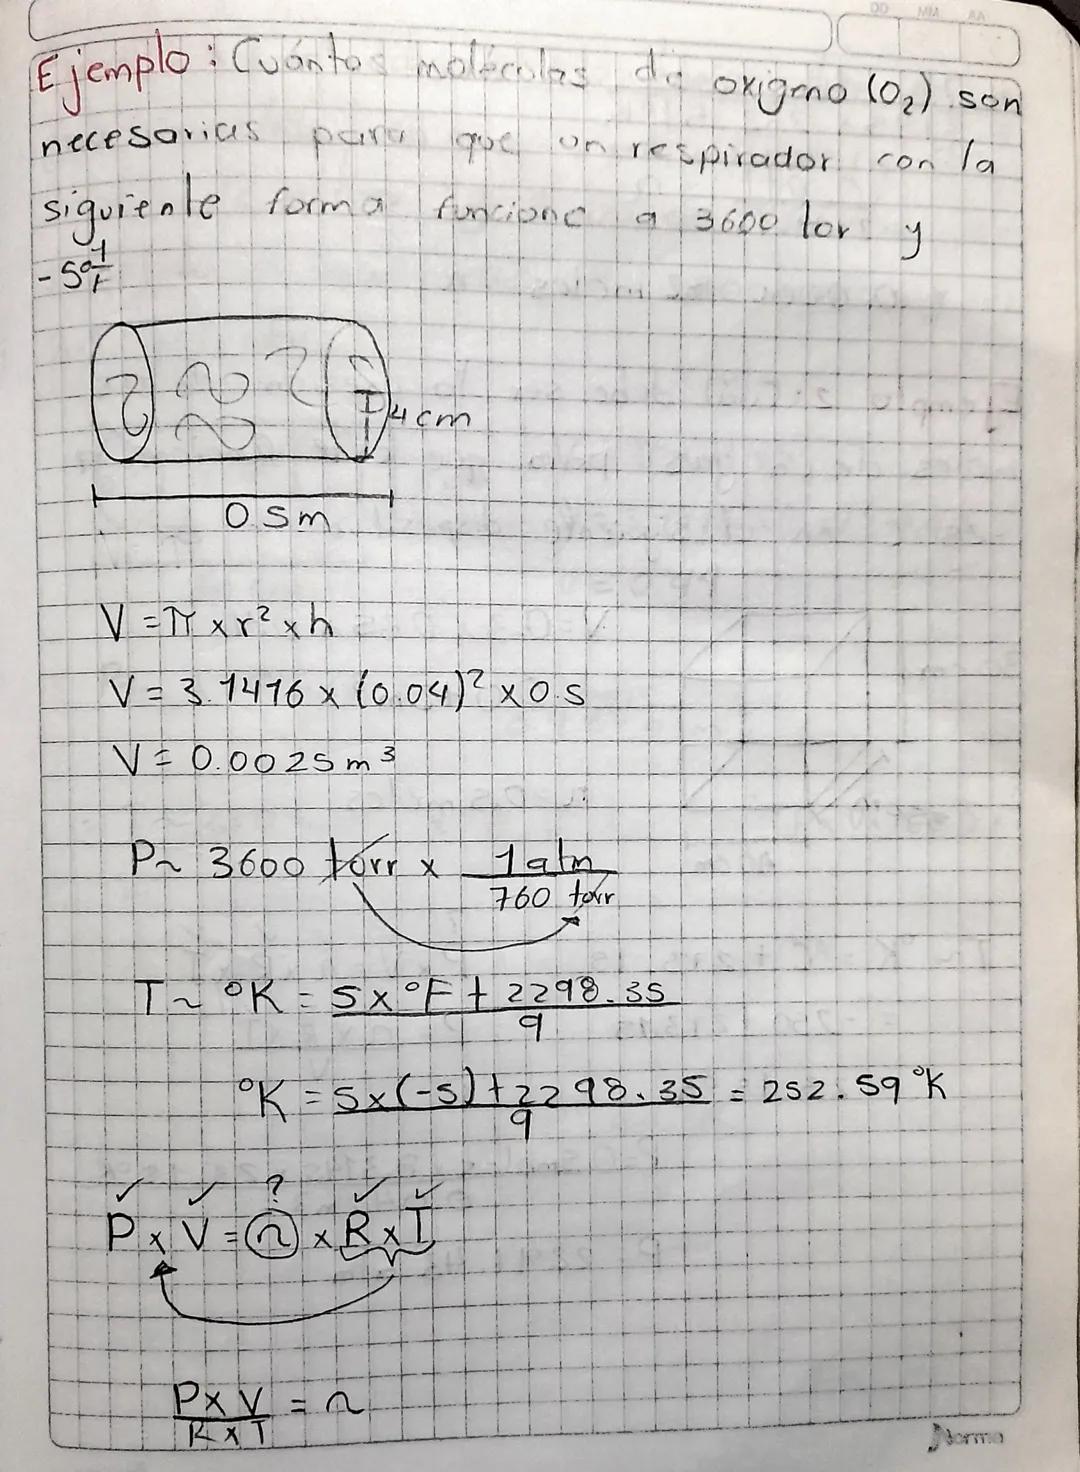 DD MM AA
Ejemplo: Cuántas moléculas de oxigeno (O₂) son
necesarias para que un respirador con la
siguiente forma funcione a 3600 tor y
-5°F
4cm
0.5m
V = π x r² x h
V = 3.1416 x (0.04)² x 0.5
V = 0.0025 m³
P~ 3600 torr x 1 atm / 760 torr
T~ °K = 5 x °F + 2298.35 / 9
°K = 5 x (-5) + 2298.35 / 9 = 252.59 °K
✓ ✓ ? ✓ ✓
P x V = n x R x T
P x V / R x T = n
Norma